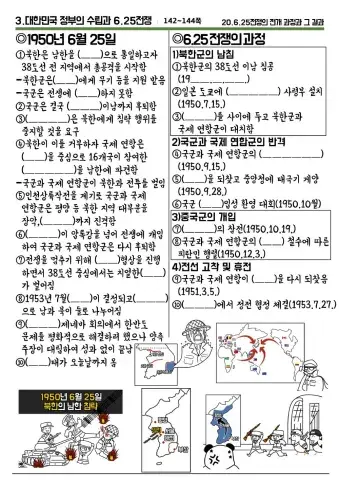 3.대한민국 정부의 수립과 6.25전쟁
142~144쪽
20.6.25전쟁의 전개 과정과 그 결과
◎1950년 6월 25일
①북한은 남한을 (____)으로 통일하고자
38도선 전 지역에서 총공격을 시작함
-북한군은(____)에게 무기 등을 지원 받음
-국군은 전쟁에 (____)하지 못함
②국군은 결국 (______)이남까지 후퇴함
③(________)은 북한에게 침략 행위를
중지할 것을 요구
④북한이 이를 거부하자 국제 연합은
(____)을 중심으로 16개국이 참여한
(________)을 남한에 파견함
-국군과 국제 연합군이 북한과 전투를 벌임
⑤인천상륙작전을 계기로 국군과 국제
연합군은 평양 등 북한 지역 대부분을
장악,(______)까지 진격함
⑥(______)이 압록강을 넘어 전쟁에 개입
하여 국군과 국제 연합군은 다시 후퇴함
⑦전쟁을 멈추기 위해 (____)협상을 진행
하면서 38도선 중심에서는 치열한(____)
가 벌어짐
⑧1953년 7월(____)이 결정되고(______)
으로 남과 북이 둘로 나누어짐
⑨(______)제네바 회의에서 한반도
문제를 평화적으로 해결하려 했으나 양측
주장이 대립하여 성과 없이 끝남
⑩(______)태가 오늘날까지 옴
1950년 6월 25일
북한의 남한 침략
◎6.25전쟁의과정
1)북한군의 남침
①북한군의 38도선 이남 침공
(19____________)
②일본 도쿄에 (____________) 사령부 설치
(1950,7,15,)
③(______)을 사이에 두고 북한군과
국제 연합군이 대치함
2)국군과 국제 연합군의 반격
④국군과 국제 연합군의 (____________)
(1950,9,15,)
⑤(____)을 되찾고 중앙청에 태극기 게양
(1950,9,28,)
⑥국군 (____)입성 환영 대회(1950,10월)
3)중국군의 개입
⑦(______)의 참전(1950,10,19,)
⑧국군과 국제 연합군의 (____) 철수에 따른
피란민 행렬(1950,12,3,)
4)전선 고착 및 휴전
⑨국군과 국제 연합군이 (____)을 다시 되찾음
(1951,3,5,)
⑩(________)에서 정전 협정 체결(1953,7,27,)